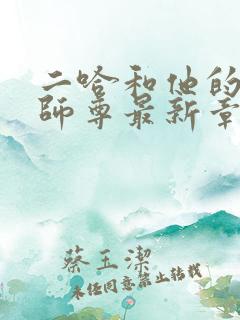 二哈和他的
師尊最新章
蔡玉潔
未经同意禁止转载